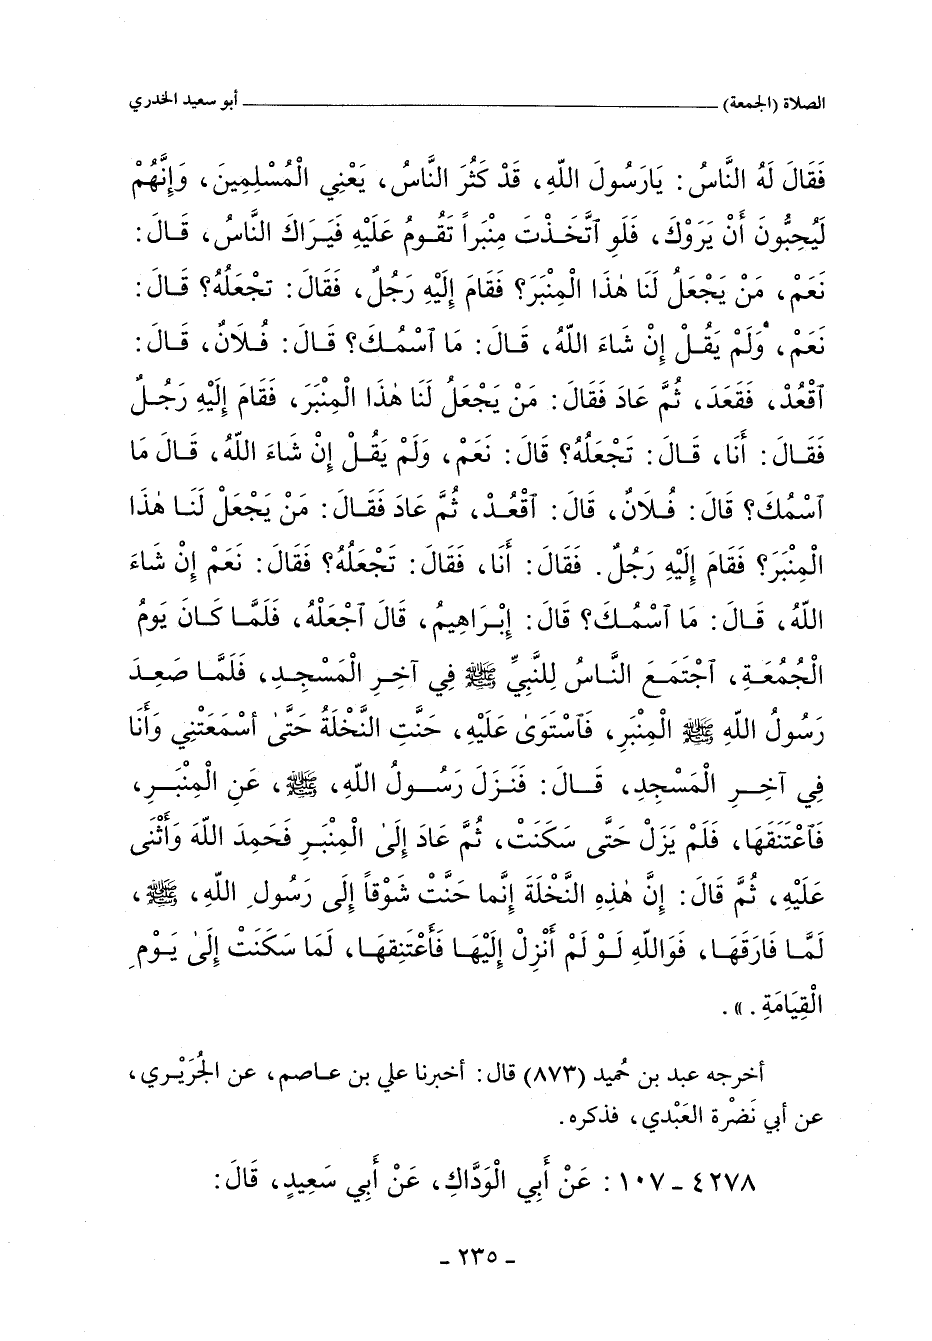 الصلاة (الجمعة) ـــــــــــــــــــــ أبو سعيد الخدري
فَقَالَ لَهُ النَّاسُ: يَارَسُولَ اللهِ، قَدْ كَثُرَ النَّاسُ، يَعْنِي الْمُسْلِمِينَ، وَإِنَّهُمْ
لَيُحِبُّونَ أَنْ يَرَوْكَ، فَلَوِ ٱتَّخَذْتَ مِنْبَراً تَقُومُ عَلَيْهِ فَيَرَاكَ النَّاسُ، قَالَ:
نَعَمْ، مَنْ يَجْعَلُ لَنَا هٰذَا الْمِنْبَرَ؟ فَقَامَ إِلَيْهِ رَجُلٌ، فَقَالَ: تَجْعَلُهُ؟ قَالَ:
نَعَمْ، وَلَمْ يَقُلْ إِنْ شَاءَ اللهُ، قَالَ: مَا ٱسْمُكَ؟ قَالَ: فُلَانٌ، قَالَ:
ٱقْعُدْ، فَقَعَدَ، ثُمَّ عَادَ فَقَالَ: مَنْ يَجْعَلُ لَنَا هٰذَا الْمِنْبَرَ، فَقَامَ إِلَيْهِ رَجُلٌ
فَقَالَ: أَنَا، قَالَ: تَجْعَلُهُ؟ قَالَ: نَعَمْ، وَلَمْ يَقُلْ إِنْ شَاءَ اللهُ، قَالَ مَا
ٱسْمُكَ؟ قَالَ: فُلَانٌ، قَالَ: ٱقْعُدْ، ثُمَّ عَادَ فَقَالَ: مَنْ يَجْعَلْ لَنَا هٰذَا
الْمِنْبَرَ؟ فَقَامَ إِلَيْهِ رَجُلٌ. فَقَالَ: أَنَا، فَقَالَ: تَجْعَلُهُ؟ فَقَالَ: نَعَمْ إِنْ شَاءَ
اللهُ، قَالَ: مَا ٱسْمُكَ؟ قَالَ: إِبْرَاهِيمُ، قَالَ ٱجْعَلْهُ، فَلَمَّا كَانَ يَوْمُ
الْجُمُعَةِ، ٱجْتَمَعَ النَّاسُ لِلنَّبِيِّ ﷺ فِي آخِرِ الْمَسْجِدِ، فَلَمَّا صَعِدَ
رَسُولُ اللهِ ﷺ الْمِنْبَرِ، فَٱسْتَوَىٰ عَلَيْهِ، حَنَّتِ النَّخْلَةُ حَتَّىٰ أَسْمَعَتْنِي وَأَنَا
فِي آخِرِ الْمَسْجِدِ، قَالَ: فَنَزَلَ رَسُولُ اللهِ، ﷺ، عَنِ الْمِنْبَرِ،
فَٱعْتَنَقَهَا، فَلَمْ يَزَلْ حَتَّى سَكَنَتْ، ثُمَّ عَادَ إِلَىٰ الْمِنْبَرِ فَحَمِدَ اللهَ وَأَثْنَى
عَلَيْهِ، ثُمَّ قَالَ: إِنَّ هٰذِهِ النَّخْلَةَ إِنَّما حَنَّتْ شَوْقاً إِلَى رَسُولِ اللهِ، ﷺ،
لَمَّا فَارَقَهَا، فَوَاللهِ لَوْ لَمْ أَنْزِلْ إِلَيْهَا فَأَعْتَنِقهَا، لَمَا سَكَنَتْ إِلَىٰ يَوْمِ
الْقِيَامَةِ.».
أخرجه عبد بن حُميد (٨٧٣) قال: أخبرنا علي بن عاصم، عن الجُرَيْري،
عن أبي نَضْرة العَبْدي، فذكره.
٤٢٧٨ - ١٠٧: عَنْ أَبِي الْوَدَّاكِ، عَنْ أَبِي سَعِيدٍ، قَالَ:
- ٢٣٥ -